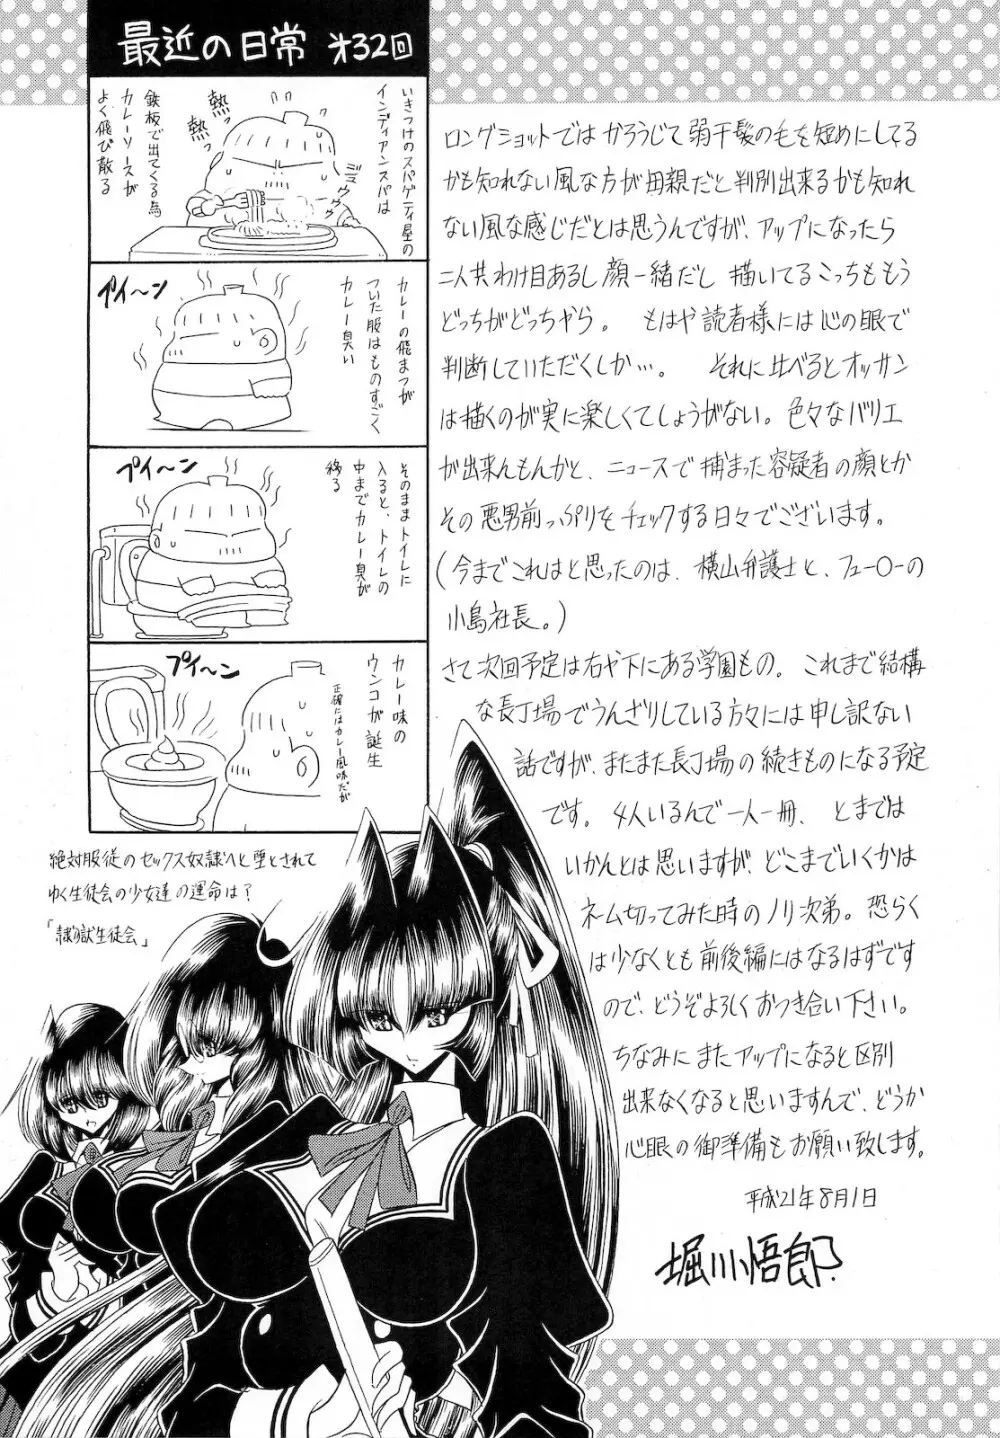 最近の日常 オ32回
いきつけのスパゲティ屋の
インディアンスパは
鉄板で出てくる為
カレーソースが
よく飛び散る
熱っ
熱っ
カレーの飛まつが
ついた服はものすごく
カレー臭い
プイ〜ン
そのままトイレに
入ると、トイレの
中までカレー臭が
移る
プイ〜ン
カレー味の
ウンコが誕生
正確にはカレー風味だが
プイ〜ン
ロングショットではかろうじて弱干髪の毛を短めにしてる
かも知れない風な方が母親だと判別出来るかも知れ
ない風な感じだとは思うんですが、アップになったら
二人共わけ目あるし顔一緒だし描いてるこっちももう
どっちがどっちやら。 もはや読者様には心の眼で
判断していただくしか…。 それに比べるとオッサン
は描くのが実に楽しくてしょうがない。色々なバリエ
が出来んもんかと、ニュースで捕まった容疑者の顔とか
その悪男前っぷりをチェックする日々でございます。
(今までこれはと思ったのは、横山弁護士と、フューO-の
小島社長。)
さて次回予定は右や下にある学園もの。これまで結構
な長丁場でうんざりしている方々には申し訳ない
話ですが、またまた長丁場の続きものになる予定
です。4人いるんで一人一冊、とまでは
いかんとは思いますが、どこまでいくかは
ネーム切ってみた時のノリ次弟。恐らく
は少なくとも前後編にはなるはずです
ので、どうぞよろしくおつき合い下さい。
ちなみにまたアップになると区別
出来なくなると思いますんで、どうか
心眼の御準備もお願い致します。
平成21年8月1日
堀川悟郎